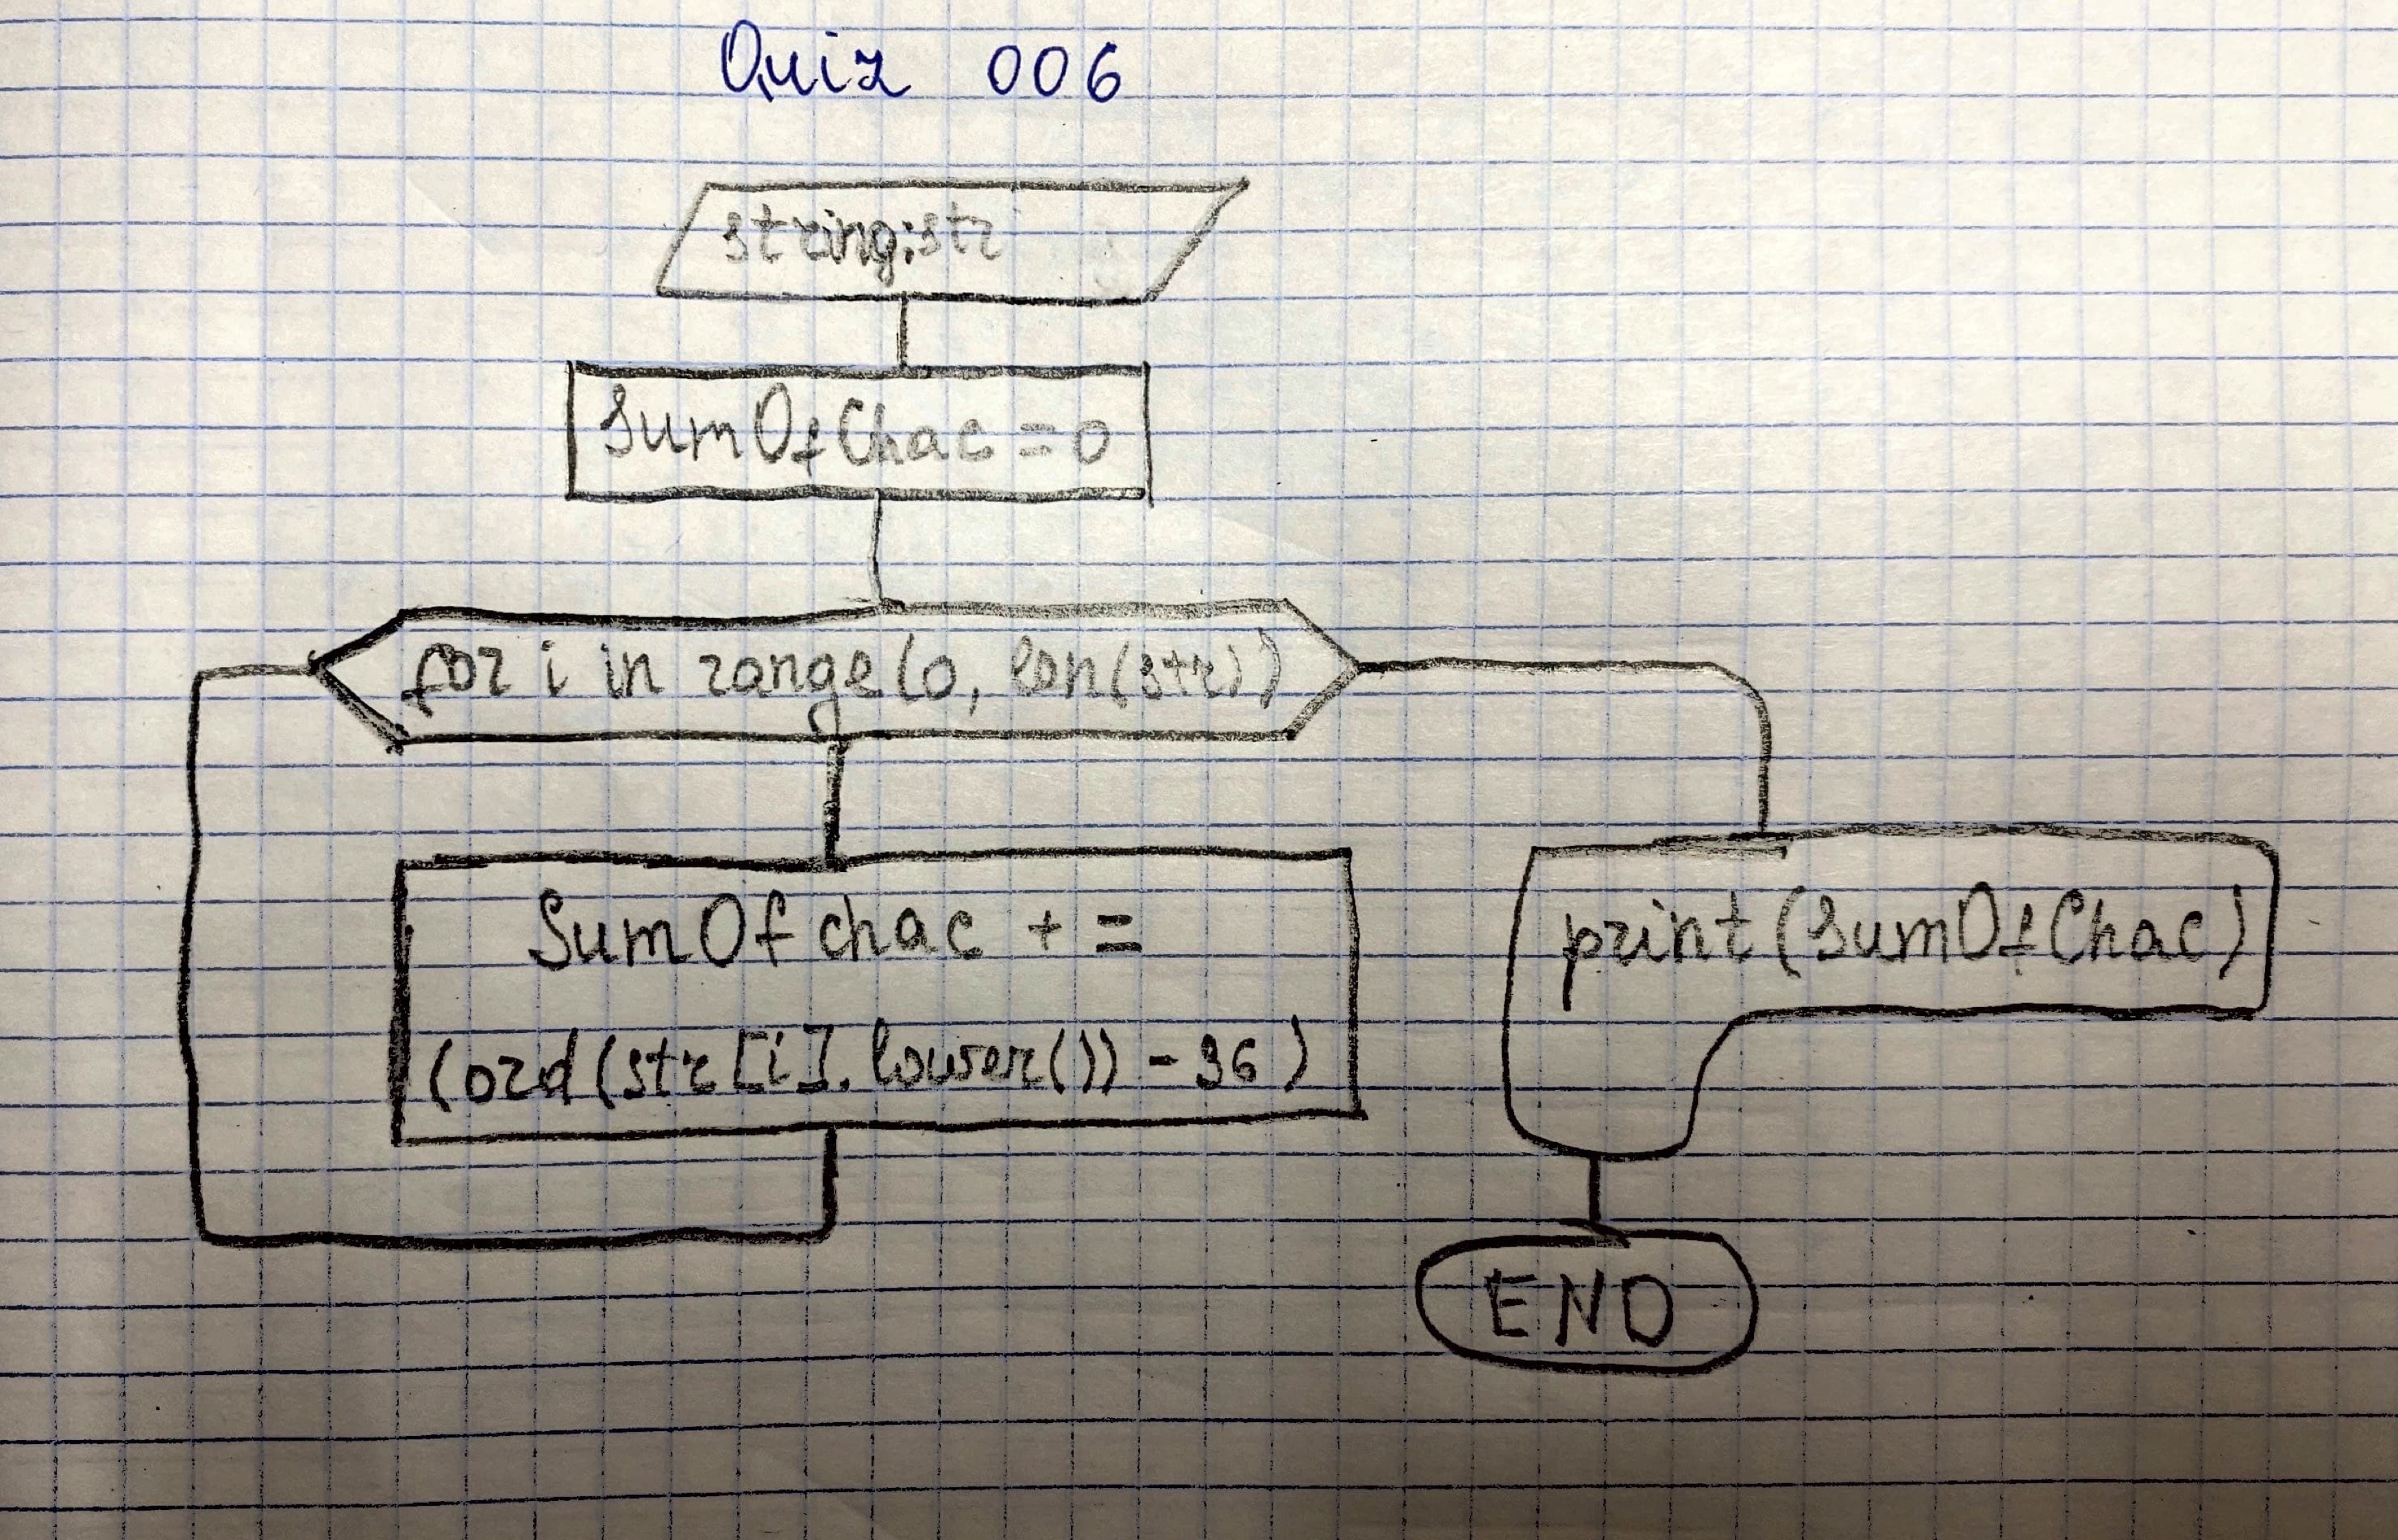 Quiz 006
string:str
SumOfChac = 0
for i in range(0, len(str))
SumOfchac + =
(ord(str[i].lower()) - 96)
print(SumOfChac)
END